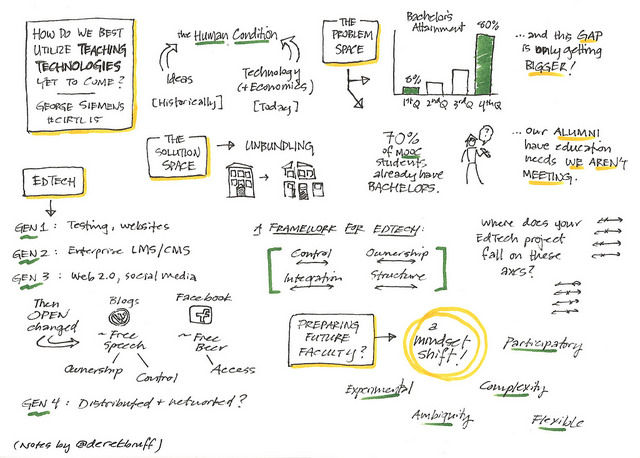 HOW DO WE BEST
UTILIZE TEACHING
TECHNOLOGIES
YET TO COME?
GEORGE SIEMENS
#CIRTL15
the Human Condition
Ideas
[Historically]
Technology
(+Economics)
[Today]
THE
PROBLEM
SPACE
Bachelor's
Attainment
80%
8%
1stQ 2ndQ 3rdQ 4thQ
...and this GAP
is only getting
BIGGER!
THE
SOLUTION
SPACE
UNBUNDLING
70%
of MOOC
students
already have
BACHELORS.
?
...our ALUMNI
have education
needs WE AREN'T
MEETING.
EDTECH
GEN 1: Testing, websites
GEN 2: Enterprise LMS/CMS
GEN 3: Web 2.0, social media
Then
OPEN
changed
Blogs
W
~ Free
Speech
Ownership
Control
Facebook
f
~ Free
Beer
Access
GEN 4: Distributed + networked?
A FRAMEWORK FOR EDTECH:
Control Ownership
Integration Structure
Where does your
EdTech project
fall on these
axes?
PREPARING
FUTURE
FACULTY?
a
mindset
shift!
Participatory
Experimental
Complexity
Ambiguity
Flexible
(Notes by @derekbruff)